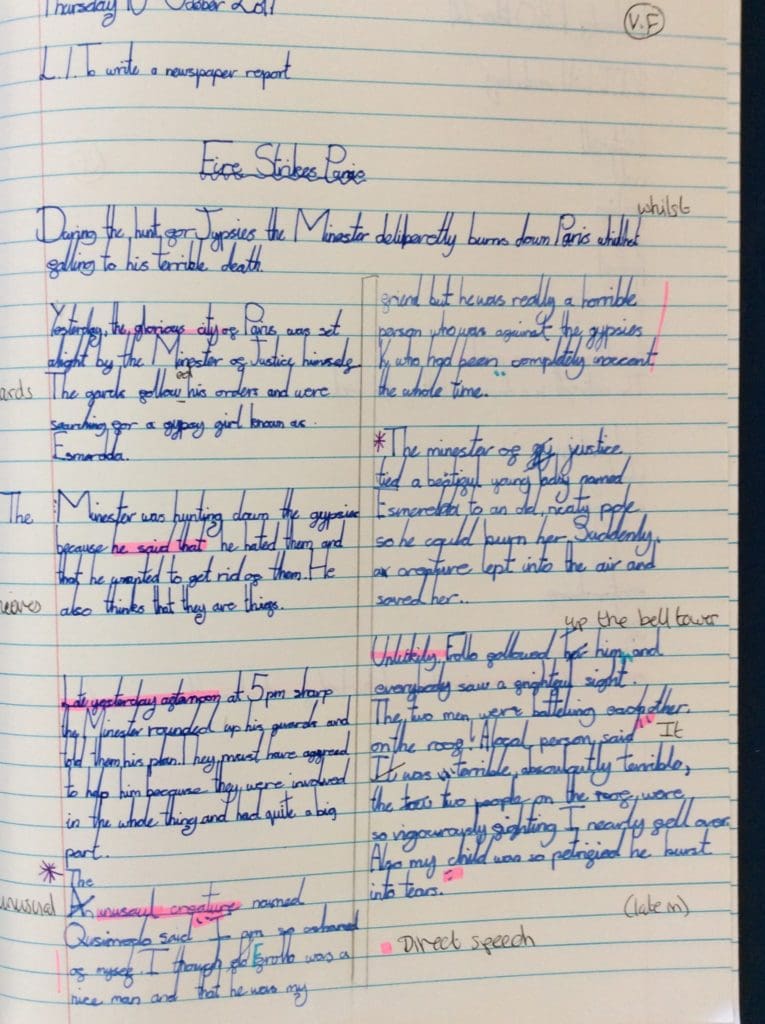 Thursday 10 October 2017
V.F
L.I. To write a newspaper report
Fire Strikes Paris
whilst
During the hunt for Jypsies the Minester deliberetly burns down Paris
falling to his terrible death.
Yesterday, the glorious city of Paris was set
alight by the Minester of Justice himself.
ards The gards follow ed his orders and were
searching for a gypsy girl known as
Esmeralda.
The Minester was hunting down the gypsies
because he said that he hated them and
that he wanted to get rid of them. He
ieves also thinks that they are things.
Late yesterday afternoon at 5pm sharp
the Minester rounded up his guards and
told them his plan. They must have aggreed
to help him because they were involved
in the whole thing and had quite a big
part.
* The
unusual An unusaul creature named
Qusimodo said I am so ashamed
of myself. I though Frollo was a
nice man and that he was my
friend but he was really a horrible
person who was against the gypsies
who had been completely inocent
the whole time.
* The minester of justice
tied a beatiful young lady named
Esmerelda to an old, neaty pole
so he could burn her. Suddenly,
a creature lept into the air and
saved her..
up the bell tower
Unlickily, Follo followed him and
everybody saw a frightful sight.
The two men were batteling eachother
on the roof! A local person said " It
It was terrible, absoulutly terrible,
the two people on the roof were
so vigourously fighting I nearly fell over.
Also my child was so petrified he burst
into tears."
(late m)
Direct speech